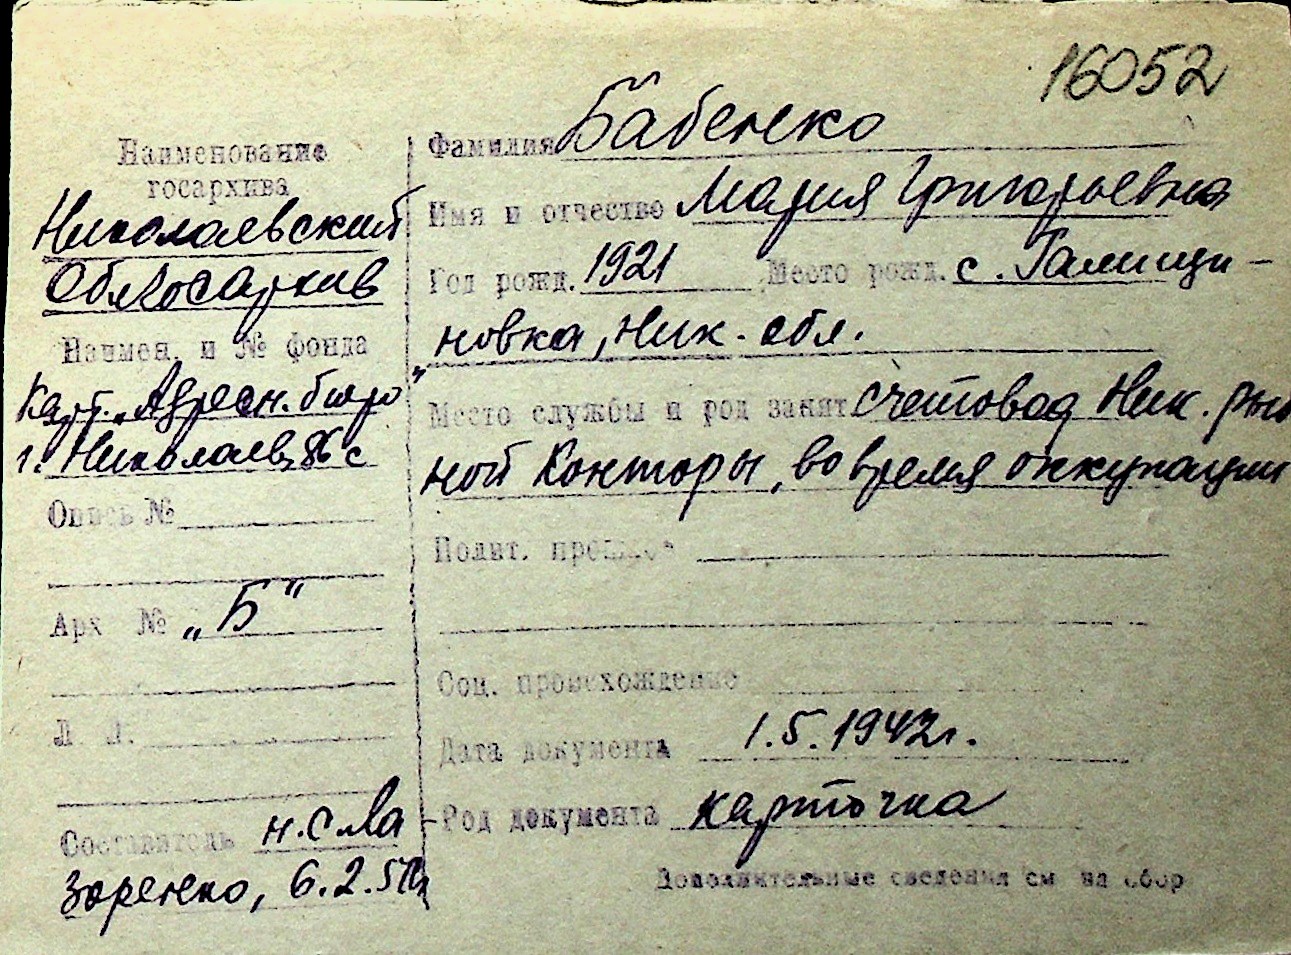 16052
Наименование
госархива
Николаевский
Облгосархив
Наимен. и № фонда
Карт. „Адресн. бюро"
г. Николаев,
Опись №
Арх № „Б"
Л. Л.
Составитель н.с. Ла
заренко, 6.2.51
Фамилия Бабенко
Имя и отчество Мария Григорьевна
Год рожд. 1921 Место рожд. с. Галици-
новка, Ник. обл.
Место службы и род занят счетовод Ник. рыб
ной Конторы, во время оккупации
Полит.
Соц. происхождение
Дата документа 1.5.1942г.
Род документа карточка
Дополнительные сведения см на обор